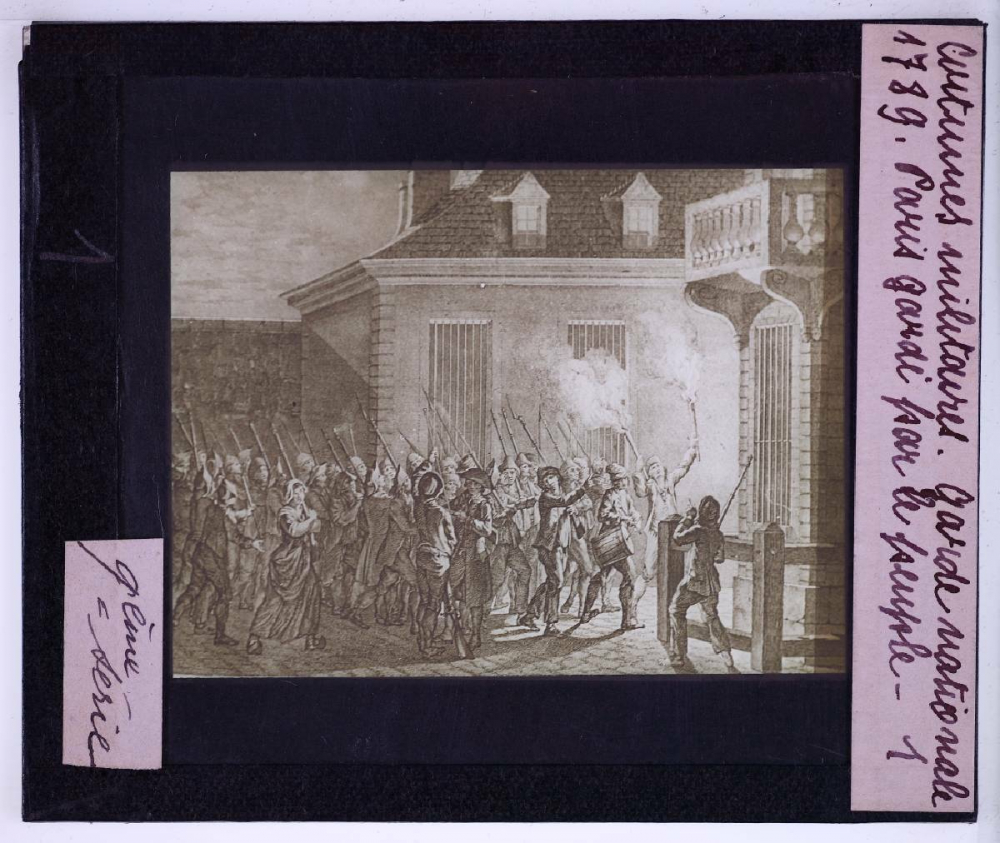 Costumes militaires. Garde nationale
1789. Paris gardé par le peuple - 1
1
9ème
= série